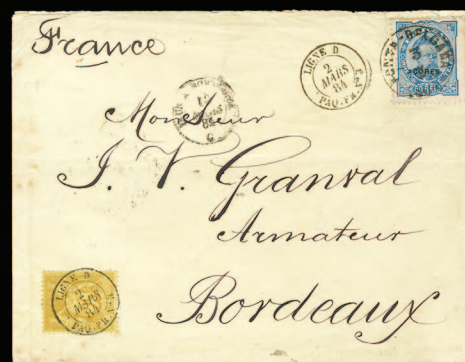 France
LIGNE D
2
MARS
84
PAQ. FR.
AÇORES
Monsieur
J. V. Granval
Armateur
Bordeaux
LIGNE D
2
MARS
84
PAQ. FR.